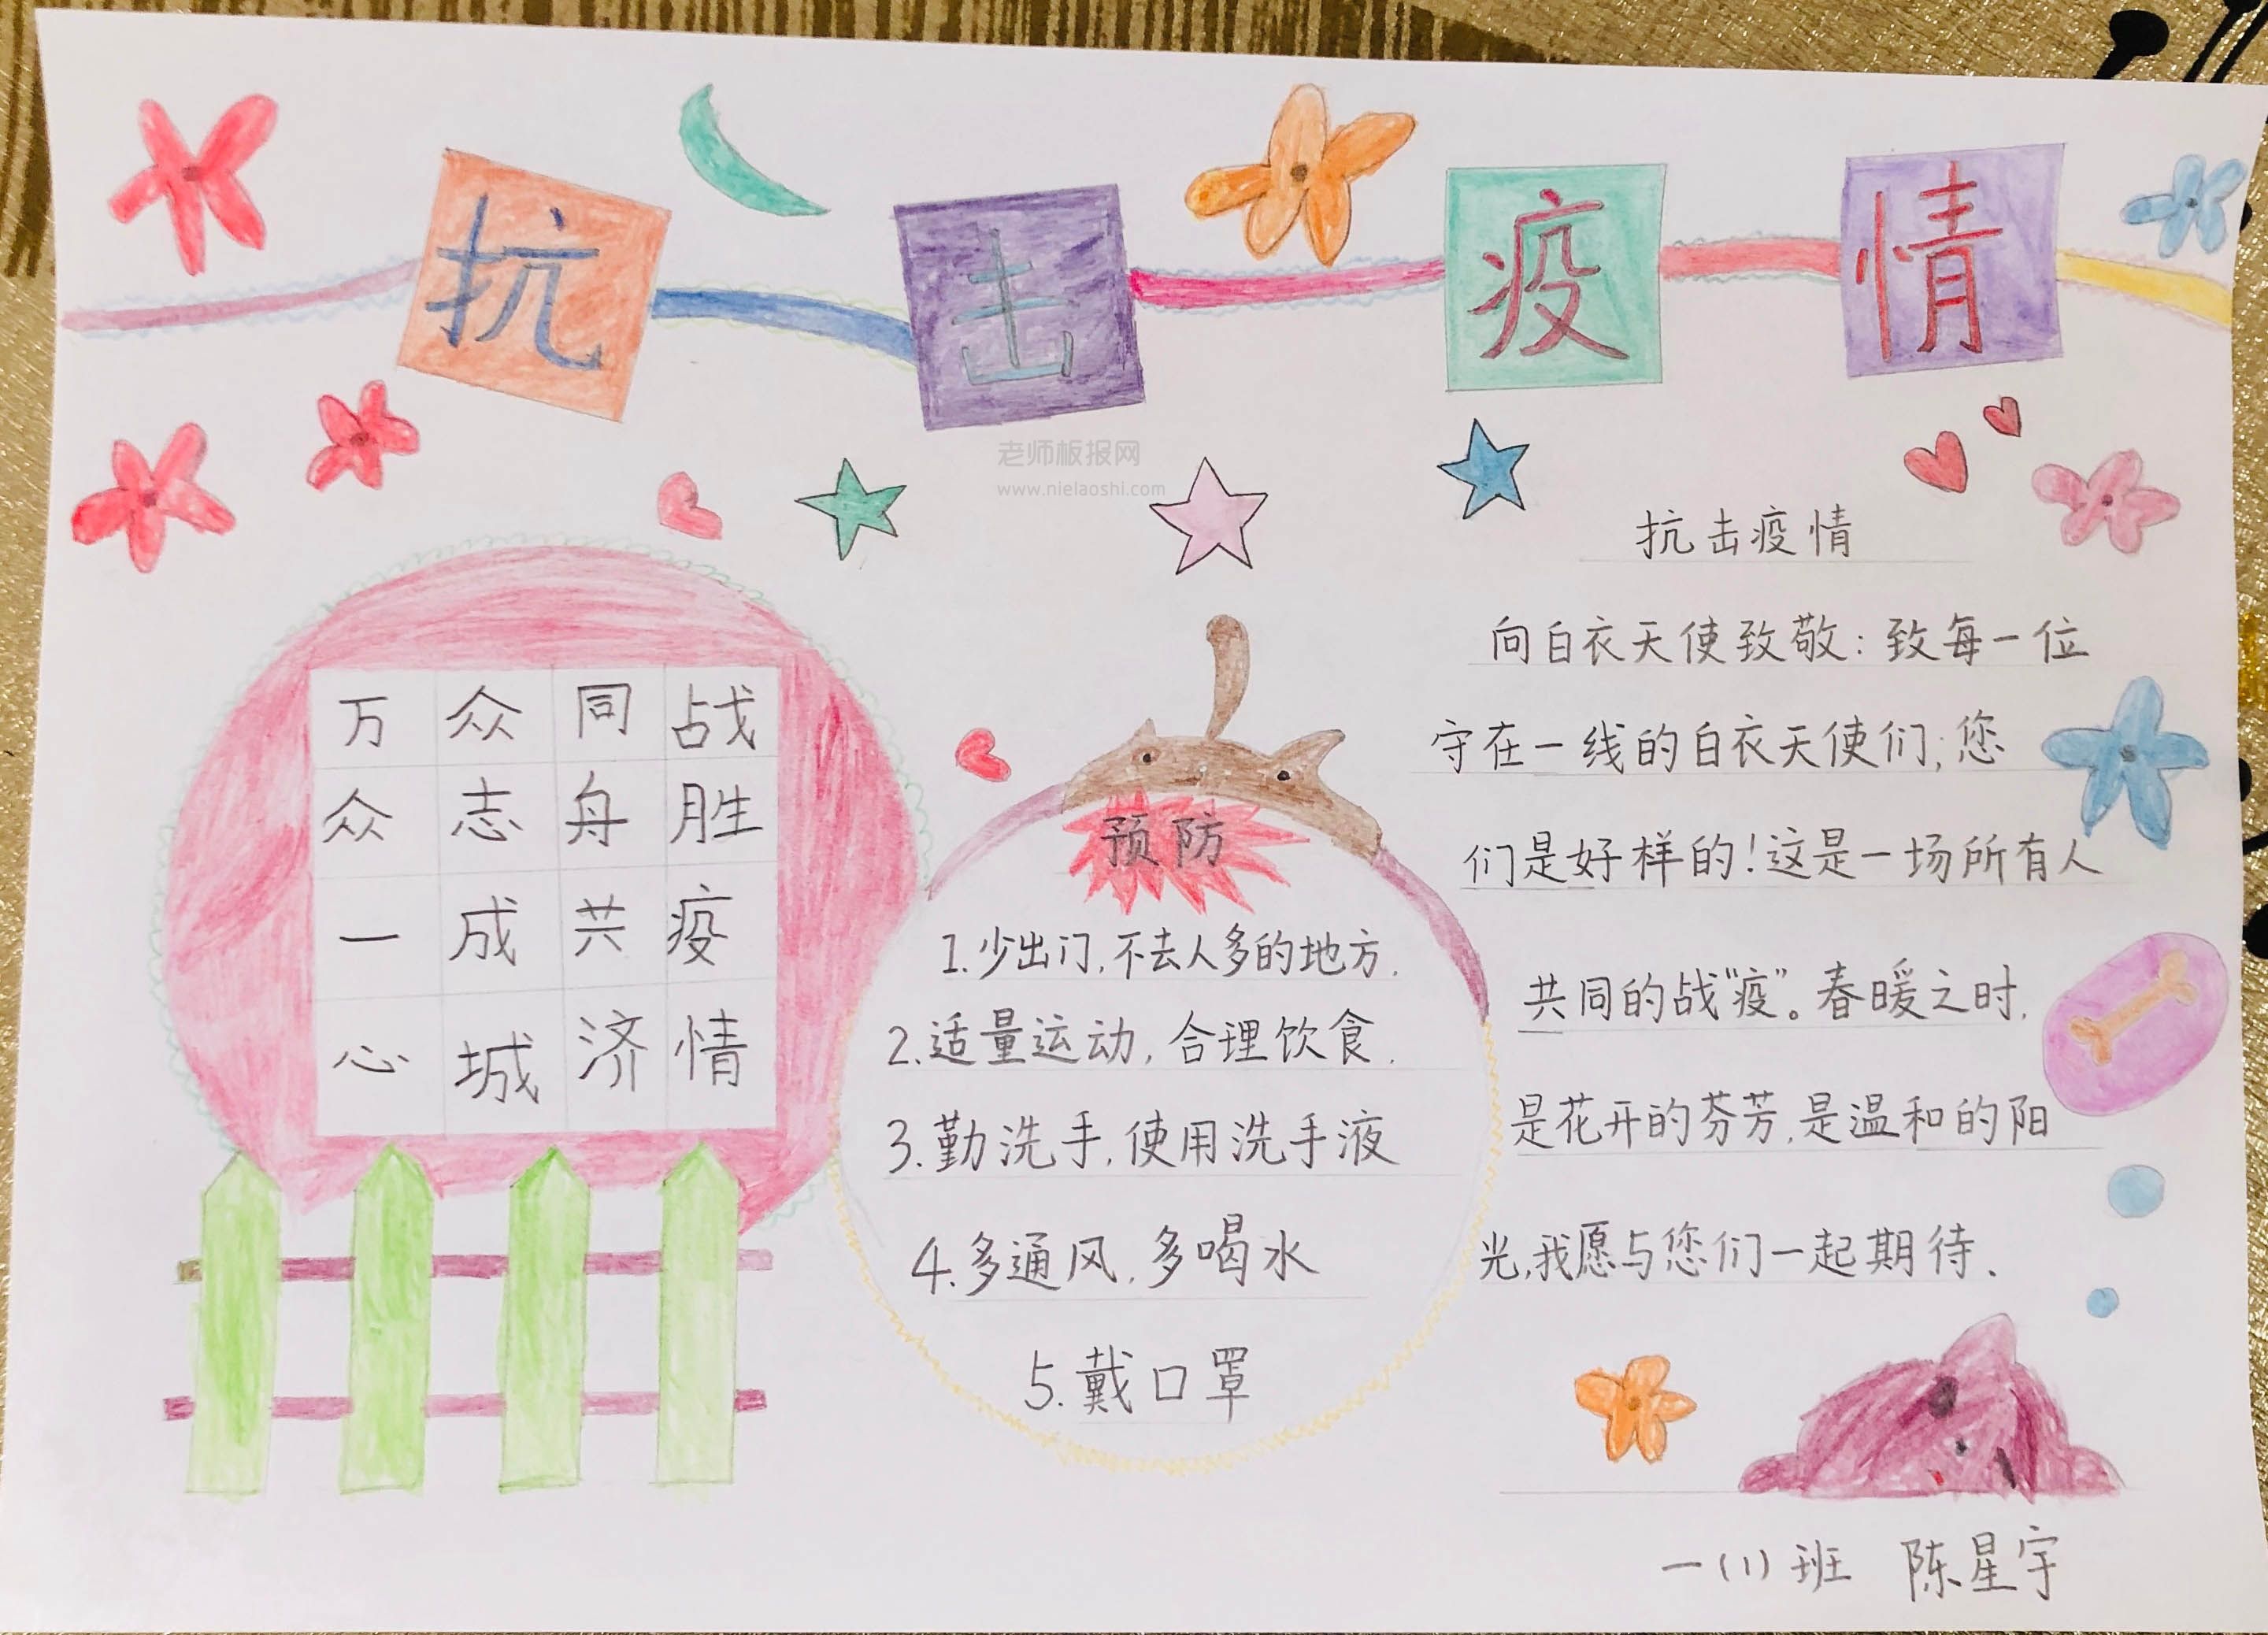 抗击疫情
老师板报网
www.nielaoshi.com
万众同战
众志舟胜
一成共疫
心城济情
预防
1.少出门,不去人多的地方.
2.适量运动,合理饮食.
3.勤洗手,使用洗手液
4.多通风,多喝水
5.戴口罩
抗击疫情
向白衣天使致敬:致每一位
守在一线的白衣天使们,您
们是好样的!这是一场所有人
共同的战“疫”。春暖之时,
是花开的芬芳,是温和的阳
光,我愿与您们一起期待.
一(1)班 陈星宇